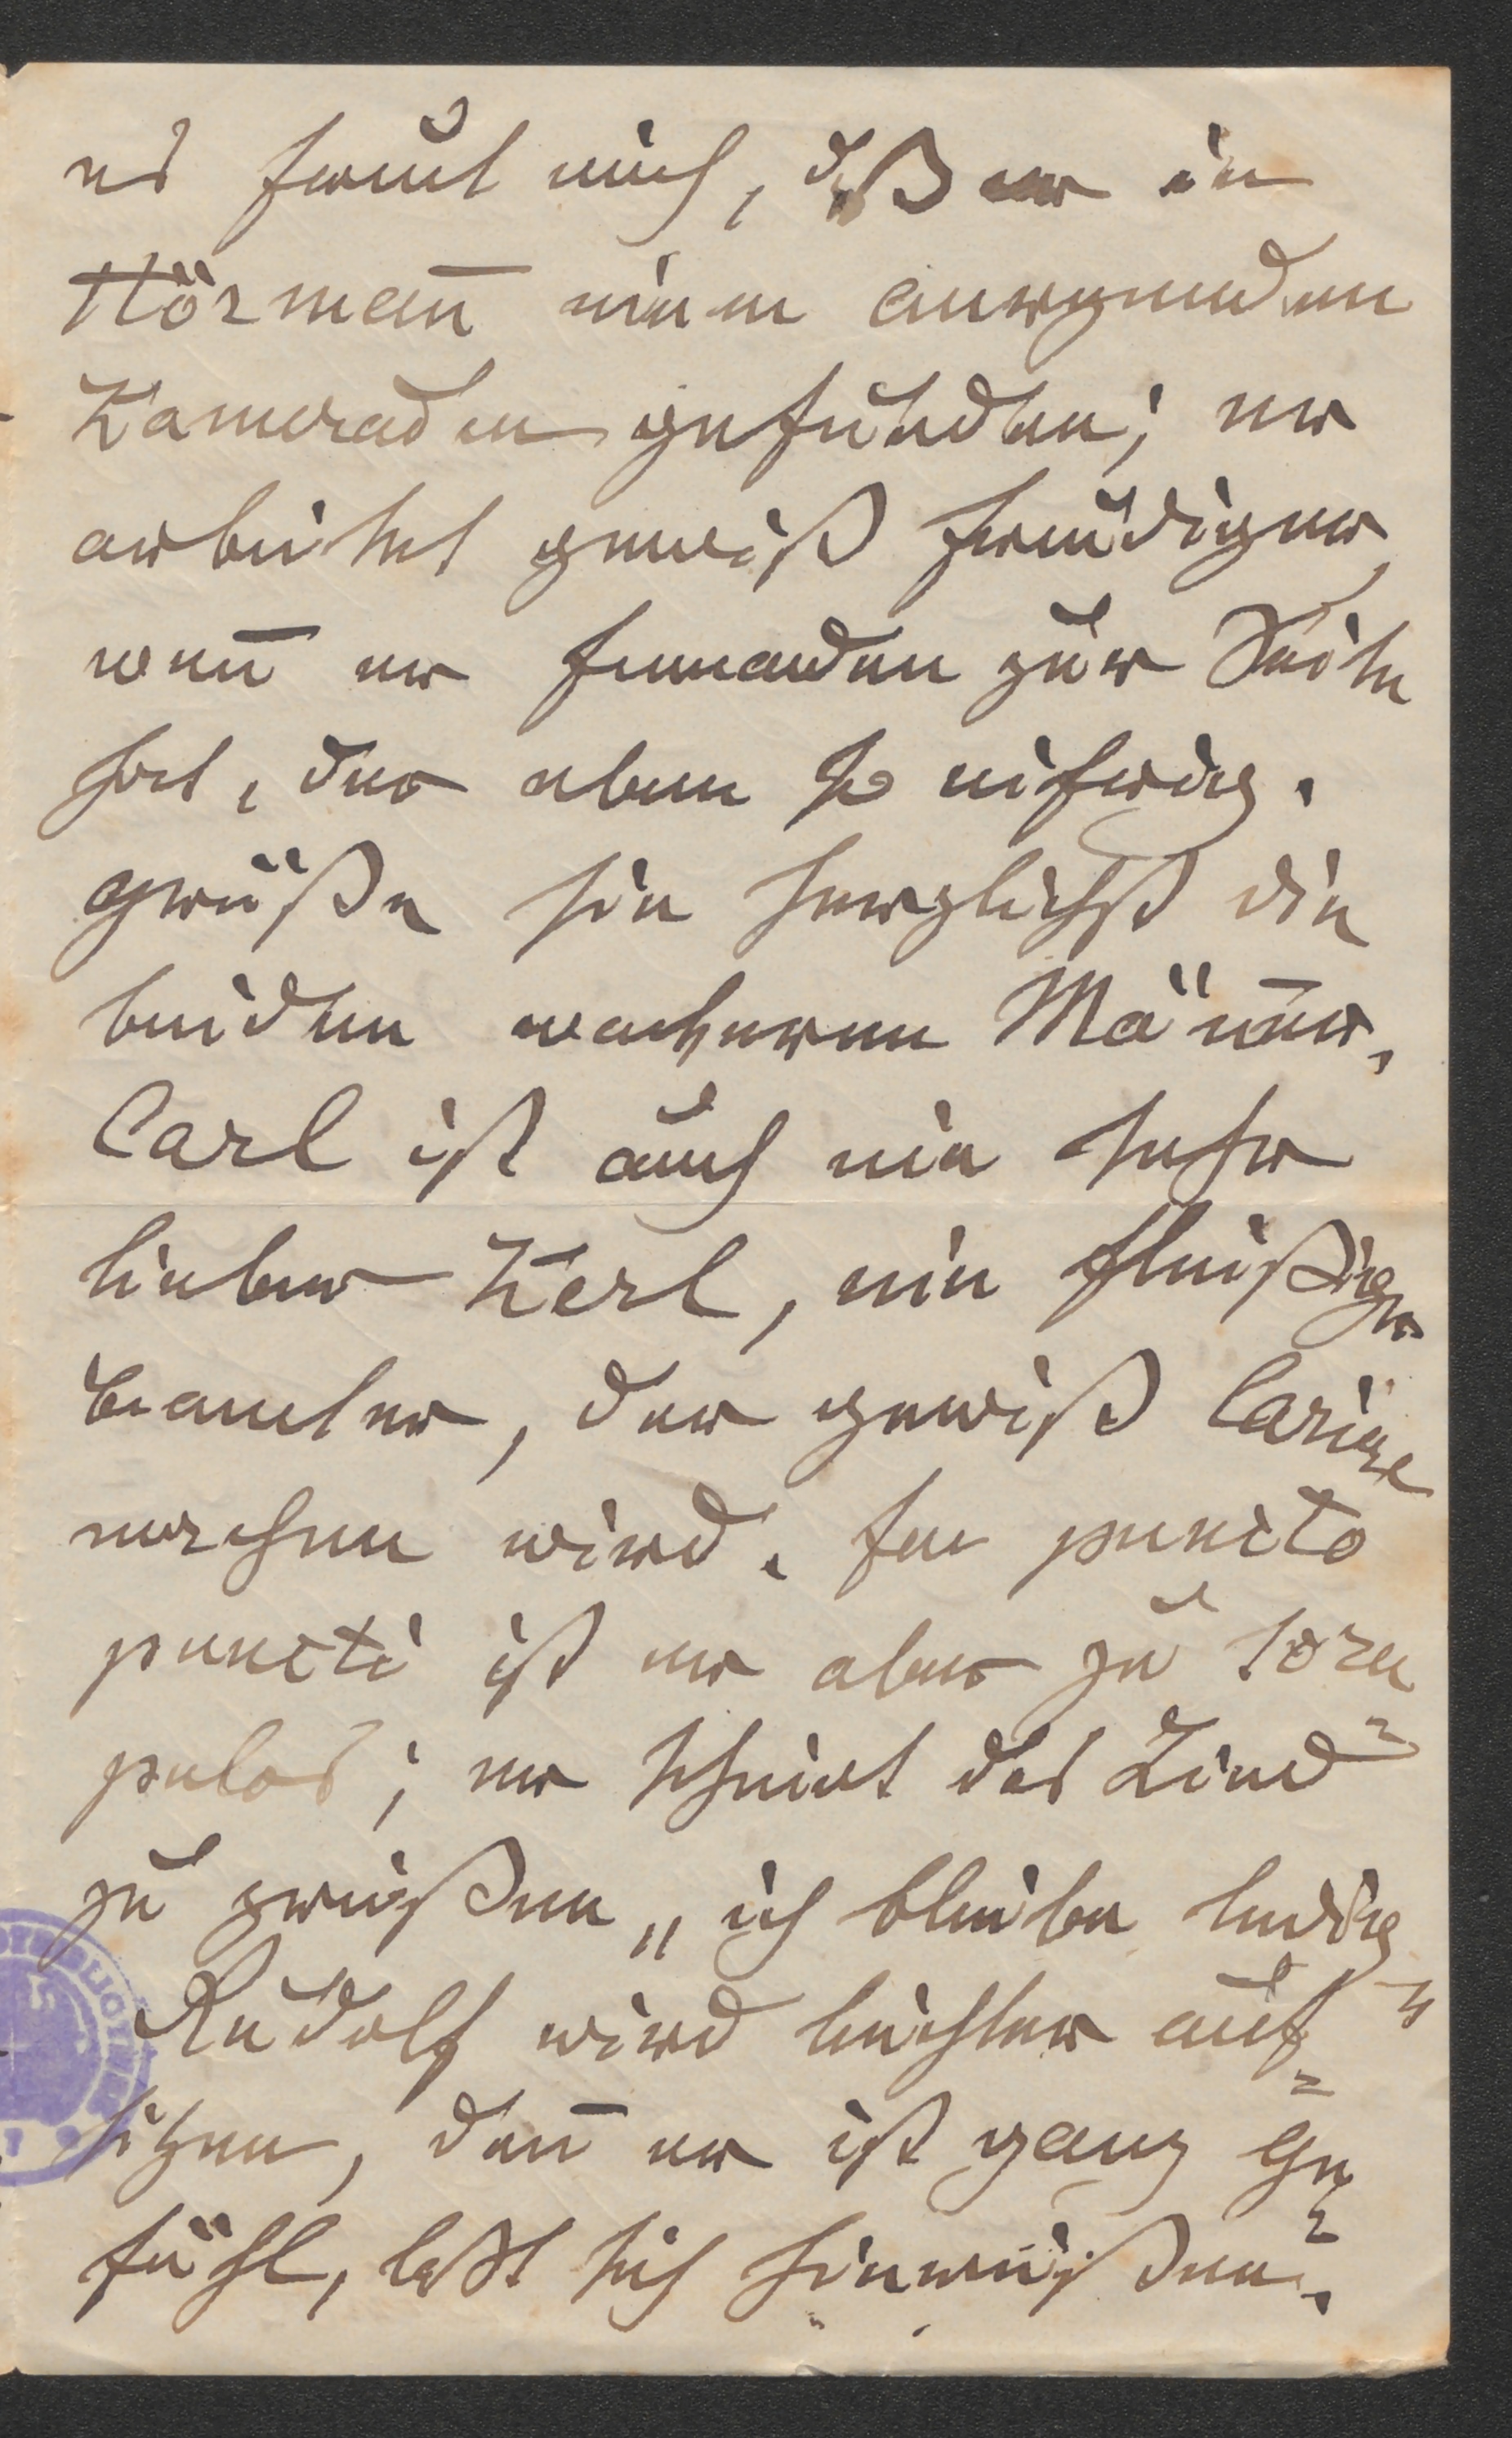 es freut mich, daß er in
Hörmañ einen anregenden
Kameraden gefunden; er
arbeitet gewiß freudiger,
weñ er Jemanden zur Seite
hat, der eben so eifrig.
Grüße sie herzlichst die
beiden wackeren Mäñer.
Carl ist auch ein sehr
lieber Kerl, ein fleißiger
Beamter, der gewiß Cariere
machen wird. In puncto
puncti ist er aber zu scru
pulos; er scheint das Lied
zu preißen „ich bleibe ledig"
Rudolf wird leichter auf=
sitzen, deñ er ist ganz Ge=
fühl, laßt sich hinreißen.